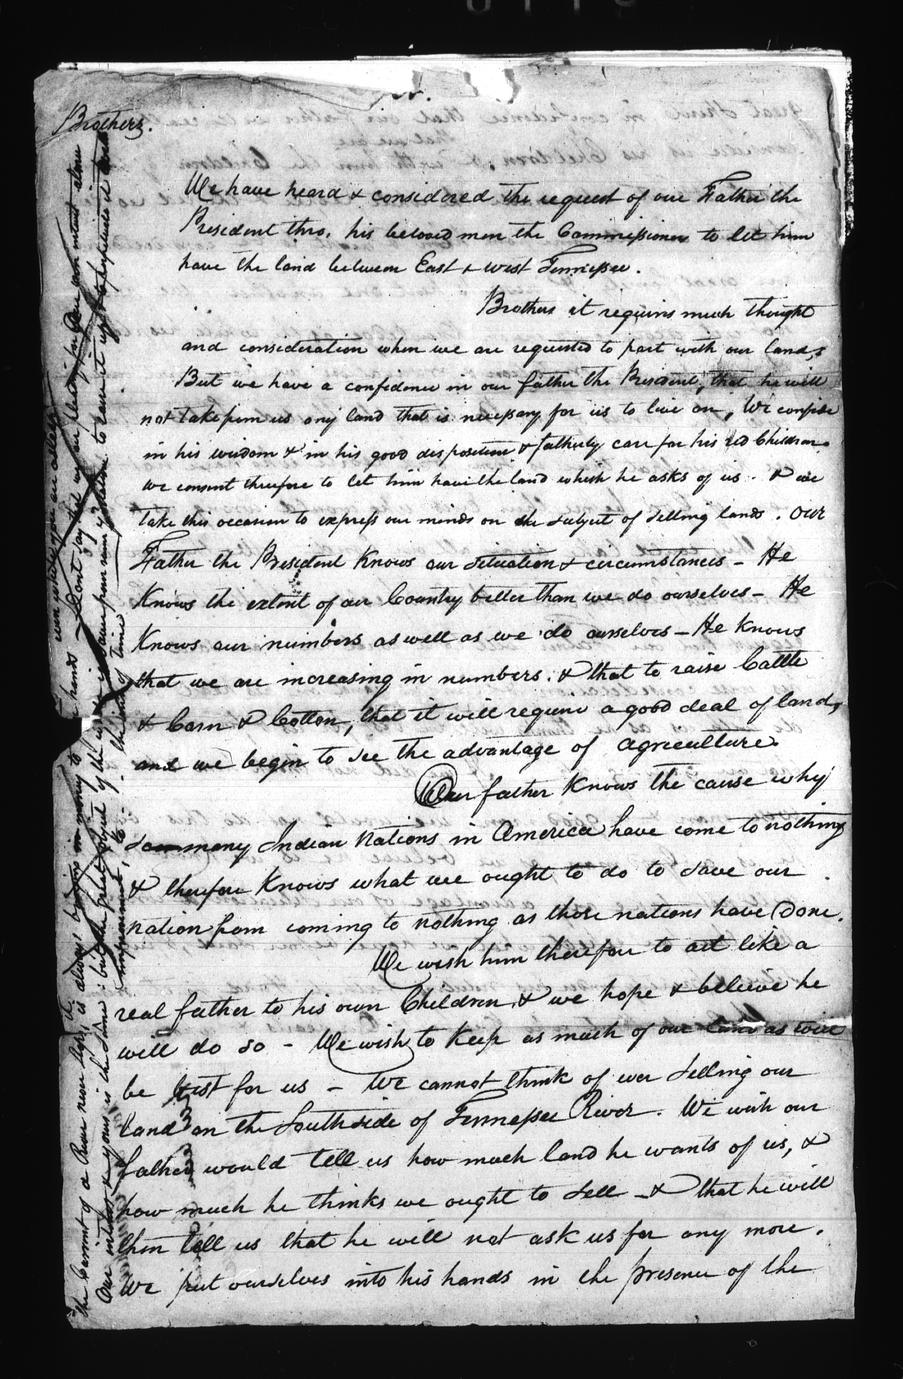 Brothers.
We have heard & considered the request of our Father the
President thro. his beloved men the Commissioners to let him
have the land between East & West Tennessee.
Brothers it requires much thought
and consideration when we are requested to part with our lands
But we have a confidence in our father the President, that he will
not take from us any land that is necessary for us to live on, We confide
in his wisdom & in his good disposition & fatherly care for his red Children.
we consent therefore to let him have the land which he asks of us. & we
take this occasion to express our minds on the subject of selling lands. Our
Father the President knows our situation & circumstances – He
knows the extent of our Country better than we do ourselves – He
knows our numbers as well as we do ourselves – He knows
that we are increasing in numbers. & that to raise Cattle
& Corn & Cotton, that it will require a good deal of land,
and we begin to see the advantage of agreeculture.
Our father knows the cause why
so many Indian Nations in America have come to nothing
& therefore knows what we ought to do to save our
nation from coming to nothing as those nations have done.
We wish him therefore to act like a
real father to his own Children, & we hope & believe he
will do so – We wish to keep as much of our land as will
be best for us – We cannot think of ever selling our
land on the South side of Tennessee River. We wish our
father would tell us how much land he wants of us, &
how much he thinks we ought to sell – & that he will
then tell us that he will not ask us for any more.
We put ourselves into his hands in the presence of the
the Carriot of a River now lays is always
Our interest & yours is the same: but the great object of the
improvement, &c.
the work of time